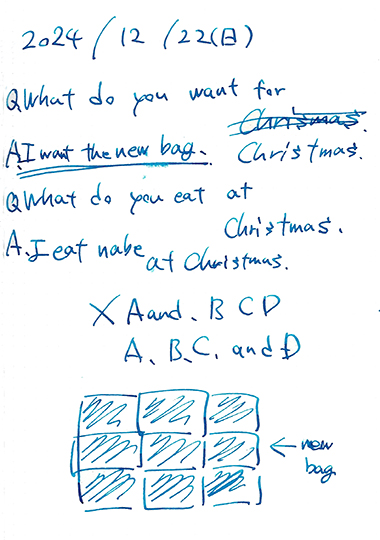 2024/12/22(日)
Q What do you want for
Christmas.
Christmas.
A. I want the new bag.
Q What do you eat at
Christmas.
A. I eat nabe
at Christmas.
X A and. B C D
A. B. C. and D
← new
bag